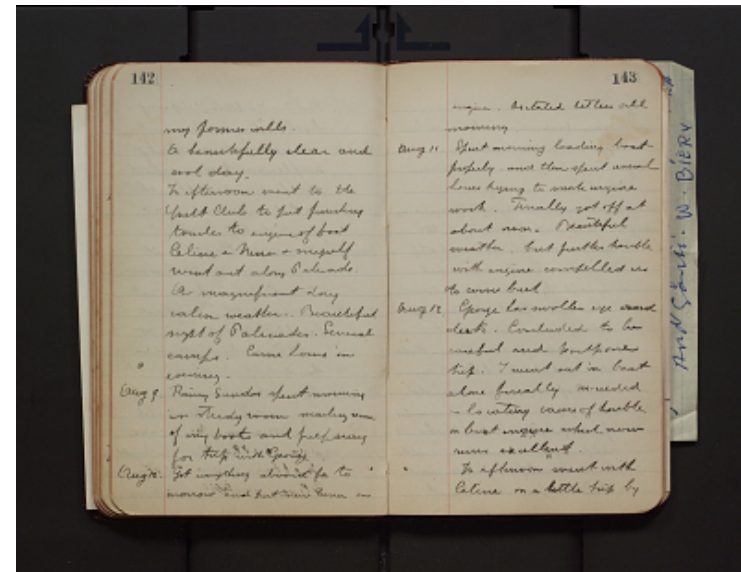 142
my former wills.
A beautifully clear and
cool day.
In afternoon went to the
Yacht Club to put finishing
touches to engine of boat
Celine + + myself
went out along Palisade.
A magnificent day
calm weather. Beautiful
sight of Palisades. Several
camps. Came home in
evening.
Aug 9. Rainy Sunday spent morning
in Study room making
of my boats and preparing
for trip with George
Aug 10. Got everything aboard for to
morrow and put new in
143
engine. Dictated letters all
morning
Aug 11. Spent morning loading boat
properly and then spent several
hours trying to make engine
work. Finally got off at
about noon. Beautiful
weather, but further trouble
with engine compelled us
to come back
Aug 12. George has swollen eye and
. Concluded to be
careful and postpone
trip. I went out in boat
alone finally succeeded
in locating cause of trouble
in boat engine which now
runs excellent.
In afternoon went with
Celine on a little trip by
W. BIERY